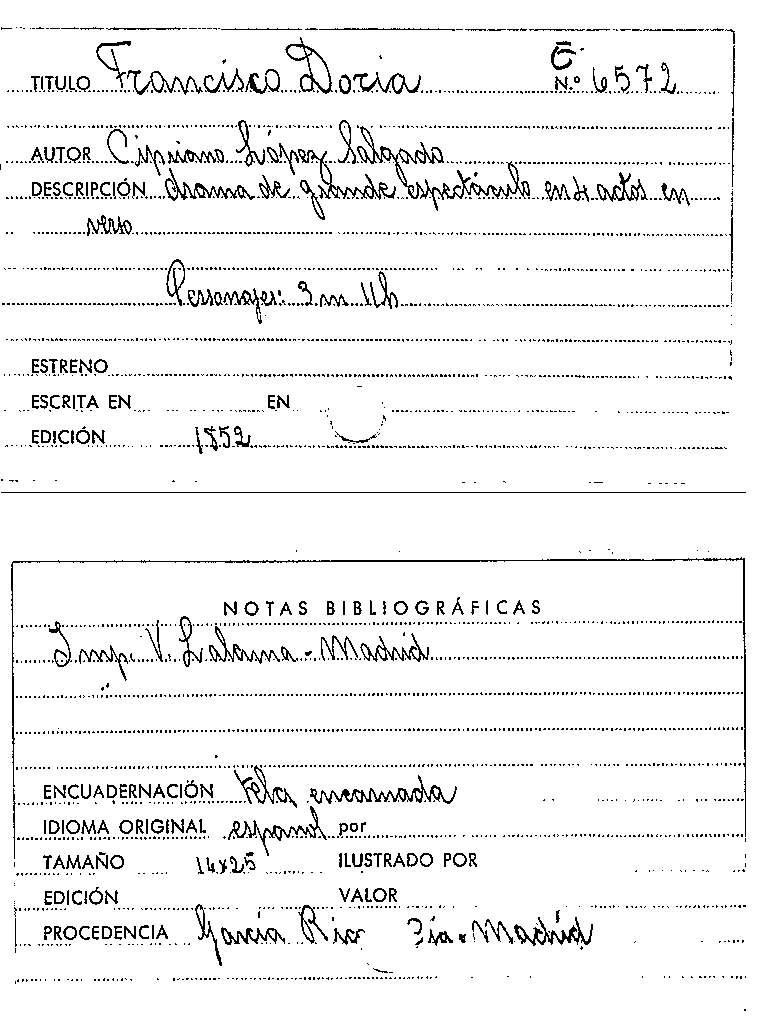 TITULO Francisco Doria N.º 6572
AUTOR Cipriano López Salgado
DESCRIPCIÓN drama de grande espectáculo en 4 actos en
verso
Personajes: 3 m 11 h
ESTRENO
ESCRITA EN EN
EDICIÓN 1852
NOTAS BIBLIOGRÁFICAS
Imp. V. Lalama - Madrid
ENCUADERNACIÓN tela encarnada
IDIOMA ORIGINAL español por
TAMAÑO 14x25 ILUSTRADO POR
EDICIÓN VALOR
PROCEDENCIA García Rico - Madrid